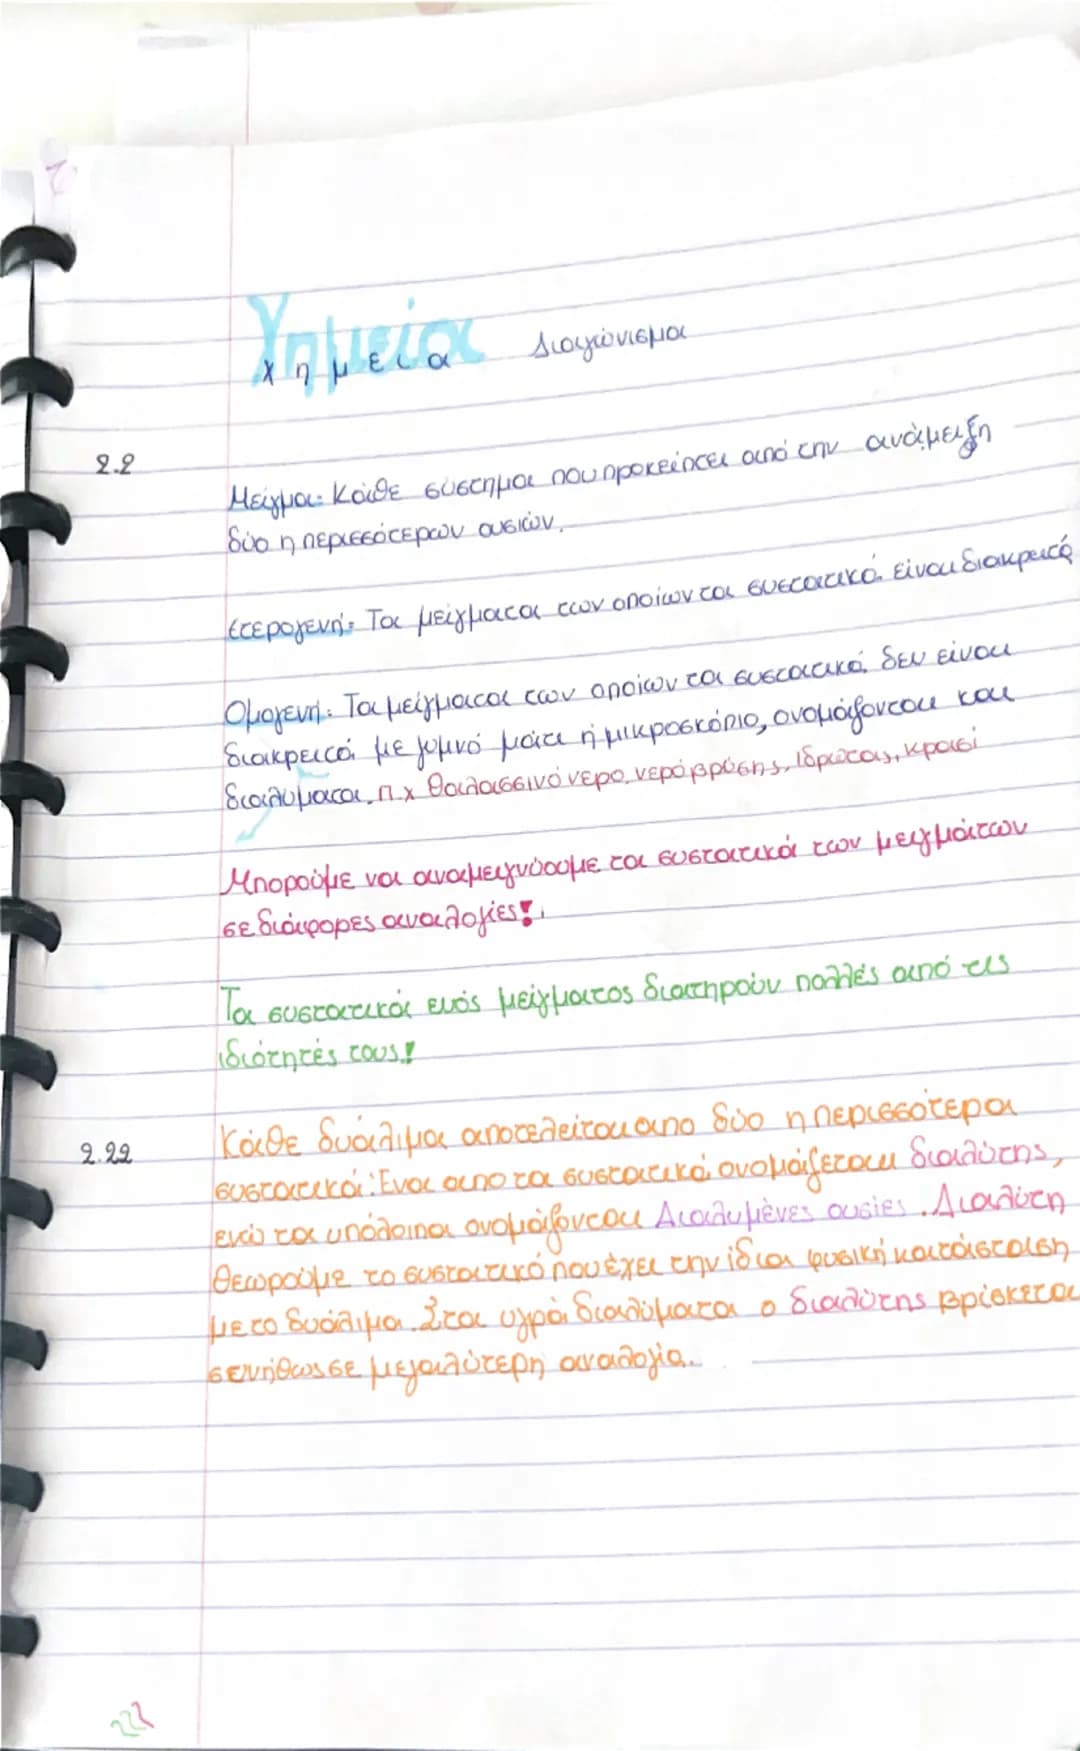 Χημεία Διαγώνισμα
χημεια
2.2
Μείγμα: Κάθε σύστημα που προκείπτει από την ανάμειξη
δύο η περισσότερων ουσιών.
Ετερογενή: Τα μείγματα των οποίων τα συστατικά είναι διακρειτά
Ομογενή: Τα μείγματα των οποίων τα συστατικά δεν είναι
διακρειτά με γυμνό μάτι ή μικροσκόπιο, ονομάζονται και
διαλυματα. π.χ Θαλασσινό νερο, νερό βρύσης, Ιδρώτας, κρασί
Μπορούμε να αναμειγνύουμε τα συστατικά των μειγμάτων
σε διάφορες αναλογίες!
Τα συστατικά ενός μείγματος διατηρούν πολλές από τις
ιδιότητές τους!
2.22
Κάθε δυάλιμα αποτελείται απο δύο η περισσότερα
συστατικά: Ένα απο τα συστατικά ονομάζεται διαλύτης,
ενώ τα υπόλοιπα ονομάζονται Διαλυμένες ουσίες. Διαλύτη
Θεωρούμε το συστατικό που έχει την ίδια φυσική κατάσταιση
με το δυάλιμα. Στα υγρά διαλύματα ο διαλύτης βρίσκεται
σενήθως σε μεγαλύτερη αναλογία.